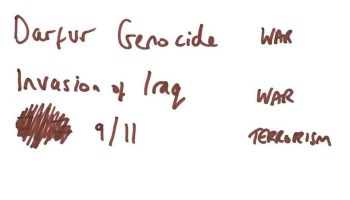 Darfur Genocide WAR
Invasion of Iraq WAR
9/11 TERRORISM